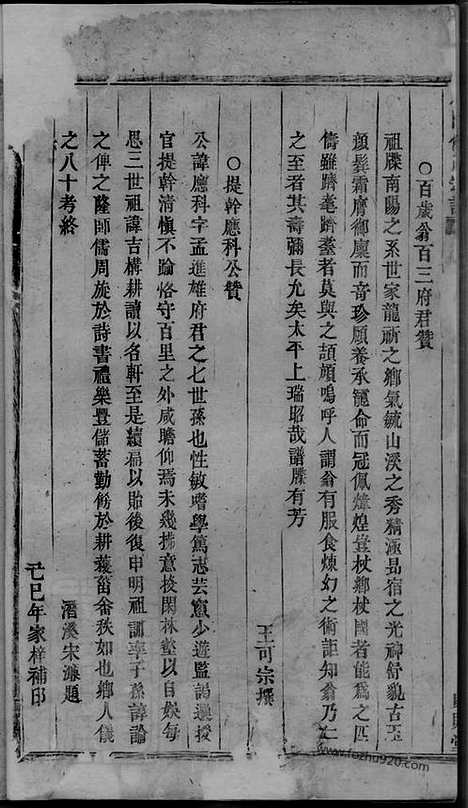 ○百歲翁百三府君贊
祖牒南陽之系世家龍祈之鄉氣毓山溪之秀精涵昴宿之光神舒貌古玉
顏鬂霜膺御廩而奇珍頤養承寵命而冠佩煒煌豈杖鄉杖國者能為之匹
儔雖躋耄躋耋者莫與之頡頏嗚呼人謂翁有服食煉幻之術詎知翁乃仁
之至者其壽彌長允矣太平上瑞昭哉譜牒有芳
王可宗撰
○提幹應科公贊
公諱應科字孟進雄府君之七世孫也性敏嗜學篤志芸窻少遊監謁選授
官提幹清愼不踰恪守百里之外咸瞻仰焉未幾拂意投閑林壑以自娛每
思三世祖諱吉構耕讀以名軒至是續扁以貽後復申明祖訓率子孫諄諭
之俾之隆師儒周旋於詩書禮樂豐儲蓄勤飭於耕耨菑畬秩如也鄉人儀
之八十考終
潛溪宋濂題
己巳年家梓補印
www.fozhu920.com